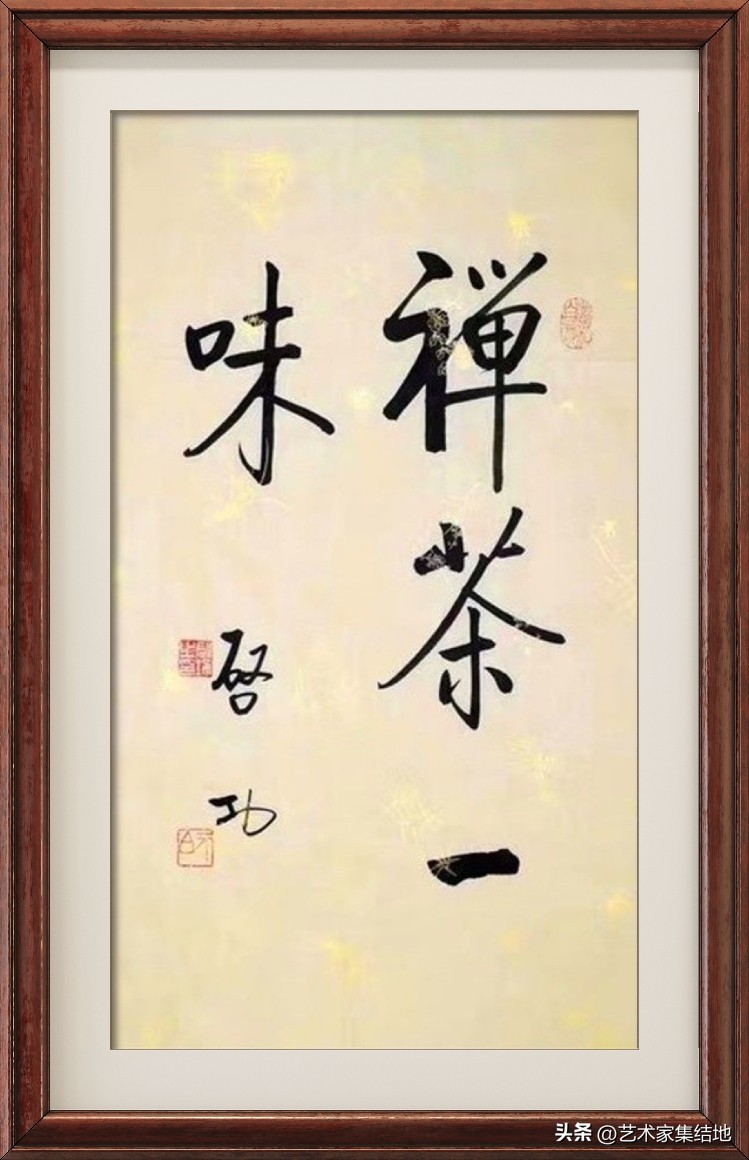 禅茶一
味
启功
头条 @艺术家集结地